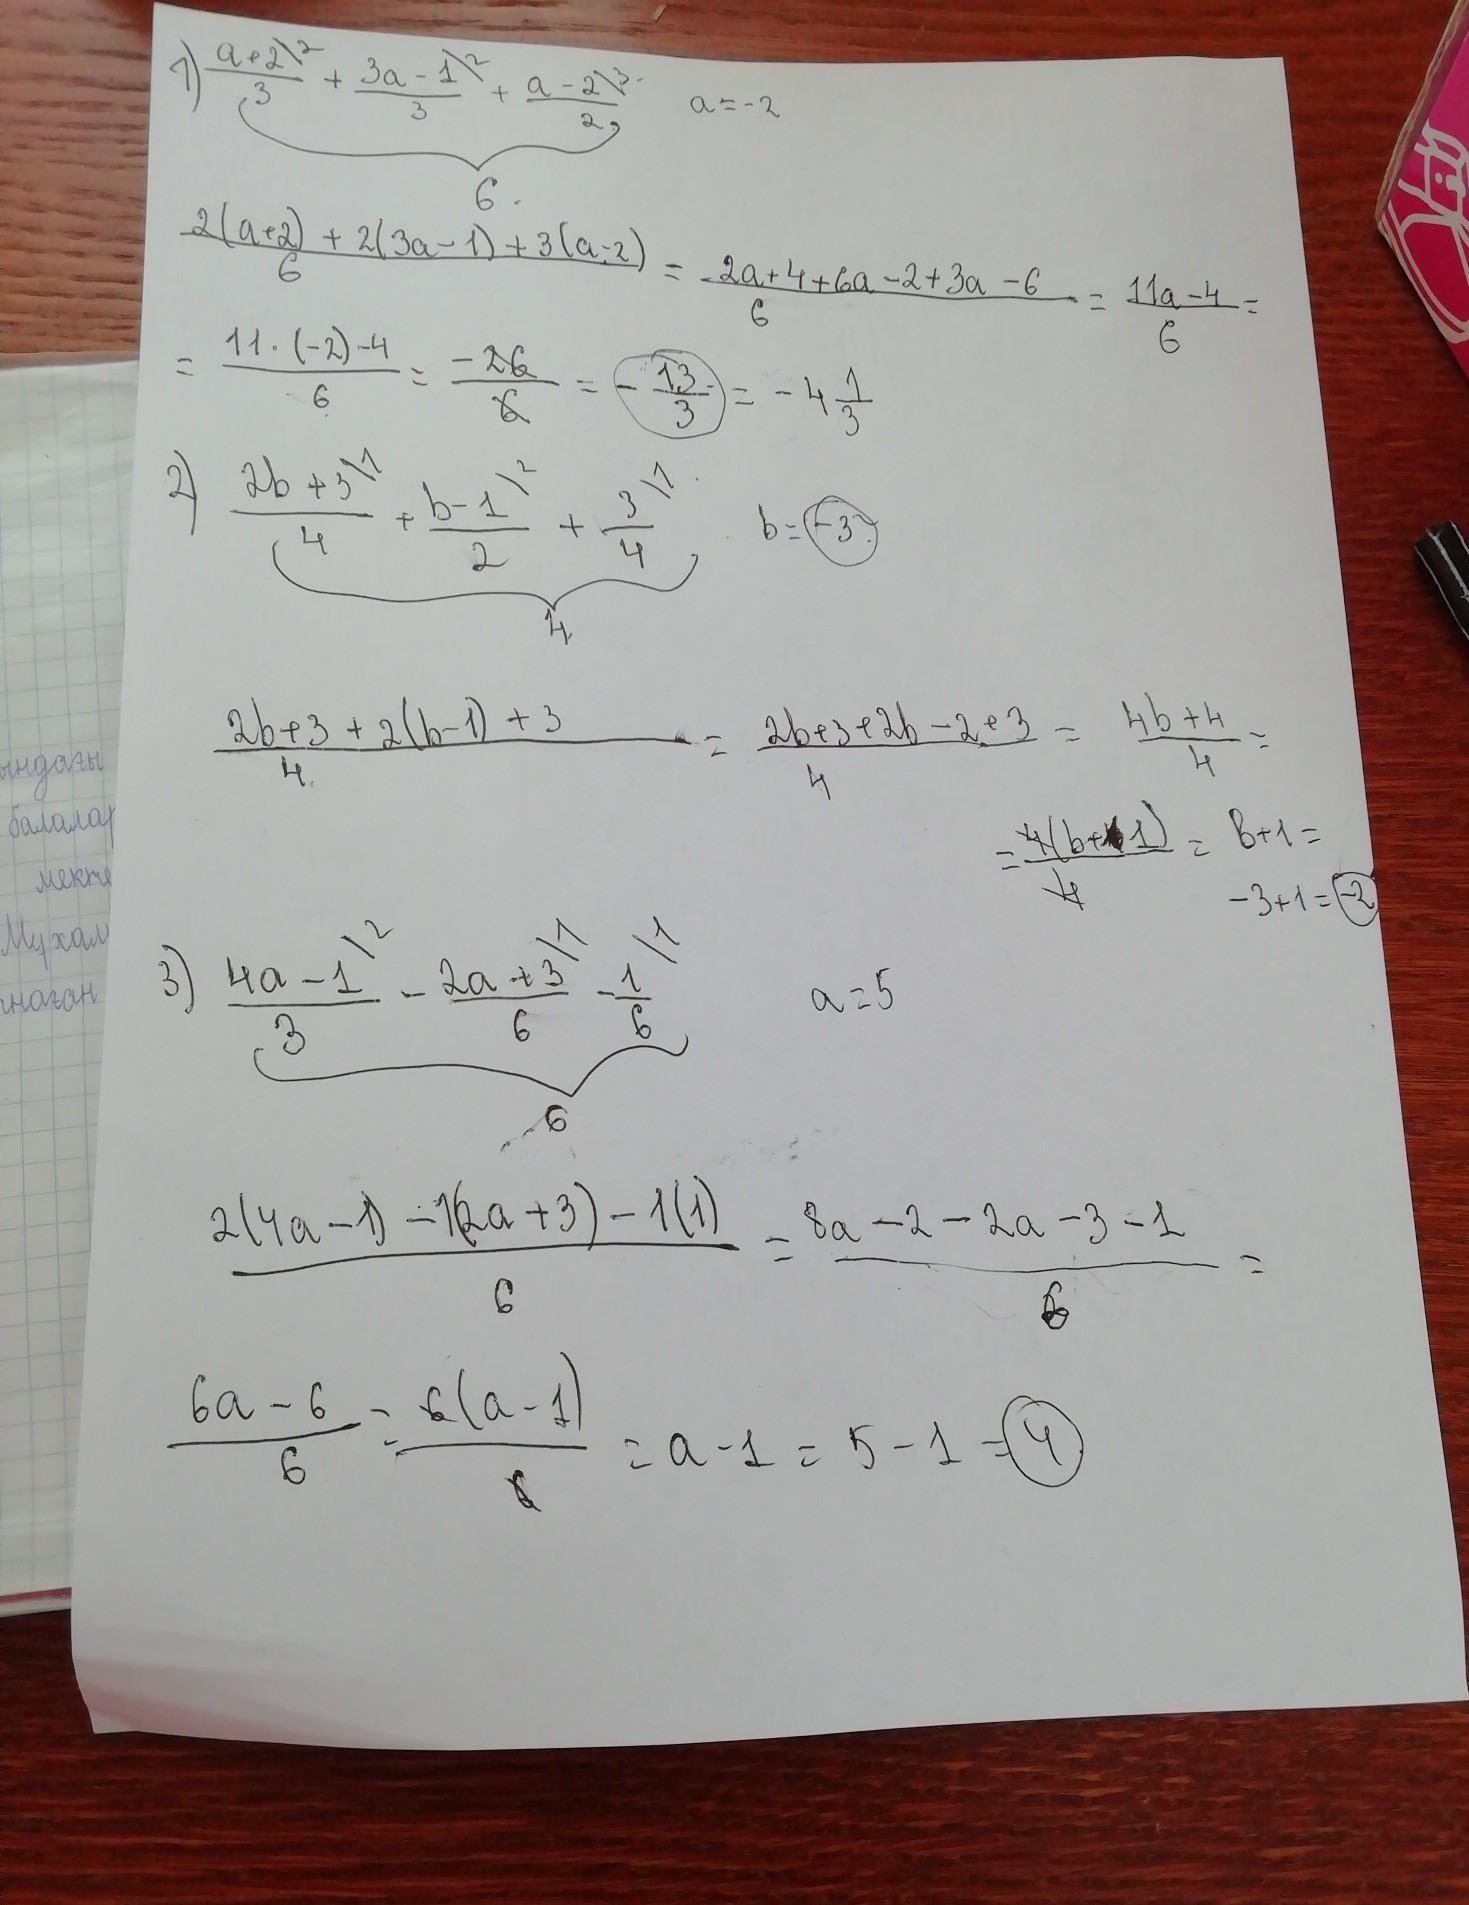 1) (a+2\2)/3 + (3a-1\2)/3 + (a-2\3)/2 a=-2
6
(2(a+2)+2(3a-1)+3(a-2))/6 = (2a+4+6a-2+3a-6)/6 = (11a-4)/6 =
= (11·(-2)-4)/6 = -26/6 = -13/3 = -4 1/3
2) (2b+3\1)/4 + (b-1\2)/2 + (3\1)/4 b=-3
4
(2b+3+2(b-1)+3)/4 = (2b+3+2b-2+3)/4 = (4b+4)/4 =
= 4(b+1)/4 = b+1=
-3+1=-2
3) (4a-1\2)/3 - (2a+3\1)/6 - (1\1)/6 a=5
6
(2(4a-1)-1(2a+3)-1(1))/6 = (8a-2-2a-3-1)/6 =
(6a-6)/6 = 6(a-1)/6 = a-1 = 5-1 = 4
ындағы
балалар
мекте
Мұхам